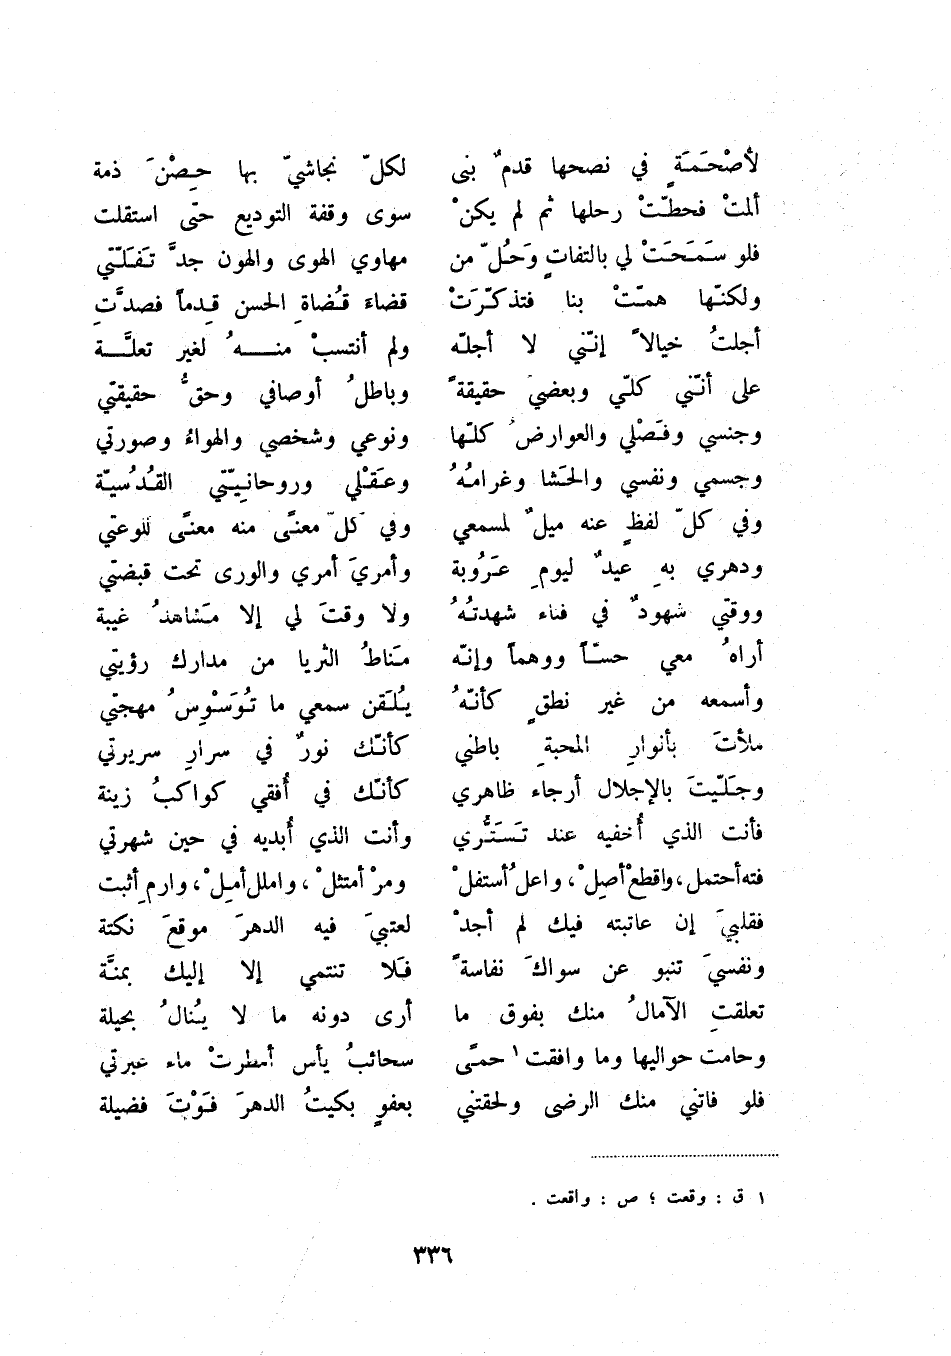 لأصْحَمَةٍ في نصحها قدمٌ بنى لكلّ نجاشيّ بها حِصْنَ ذمة
ألمتْ فحطّتْ رحلها ثم لم يكنْ سوى وقفة التوديع حتّى استقلت
فلو سَمَحَتْ لي بالتفاتٍ وَحُلّ من مهاوي الهوى والهون جدَّ تَفَلّتي
ولكنّها همّتْ بنا فتذكّرَتْ قضاءَ قُضاةِ الحسن قِدماً فصدَّتِ
أجلتُ خيالاً إنّني لا أجلّه ولم أنتسبْ منهُ لغير تعلَّة
على أنّني كلّي وبعضيَ حقيقةً وباطلُ أوصافي وحقُّ حقيقتي
وجنسي وفَصْلي والعوارضُ كلّها ونوعي وشخصي والهواءُ وصورتي
وجسمي ونفسي والحَشا وغرامُهُ وعَقْلي وروحانِيّتي القُدُسيّة
وفي كلّ لفظٍ عنه ميلٌ لمسمعي وفي كلّ معنًى منه معنًى للوعتي
ودهري بهِ عيدٌ ليومِ عَرُوبة وأمريَ أمري والورى تحت قبضتي
ووقتي شهودٌ في فناء شهدتُهُ ولا وقتَ لي إلا مَشاهدُ غيبة
أراهُ معي حسّاً ووهماً وإنّه مَناطُ الثريا من مدارك رؤيتي
وأسمعه من غير نطقٍ كأنّهُ يُلَقن سمعي ما تُوَسْوِسُ مهجتي
ملأتَ بأنوارِ المحبةِ باطني كأنّك نورٌ في سرارِ سريرتي
وجَلّيتَ بالإجلال أرجاء ظاهري كأنّك في أُفقي كواكبُ زينة
فأنت الذي أُخفيه عند تَسَتُّري وأنت الذي أُبديه في حين شهرتي
فته أحتمل، واقطع أصِلْ، واعلُ أستفلْ ومرْ أمتثلْ، واملل أمِلْ، وارمِ أثبت
فقلبيَ إن عاتبته فيك لم أجدْ لعتبيَ فيه الدهرَ موقعَ نكتة
ونفسيَ تنبو عن سواكَ نفاسةً فَلا تنتمي إلا إليك بمنَّة
تعلقتِ الآمالُ منك بفوق ما أرى دونه ما لا يُنالُ بحيلة
وحامت حواليها وما وافقت ١ حمًى سحائبُ يأس أمطرتْ ماء عبرتي
فلو فاتني منك الرضى ولحقتني بعفوٍ بكيتُ الدهرَ فَوْتَ فضيلة
١ ق : وقعت ؛ ص : واقعت .
٣٣٦